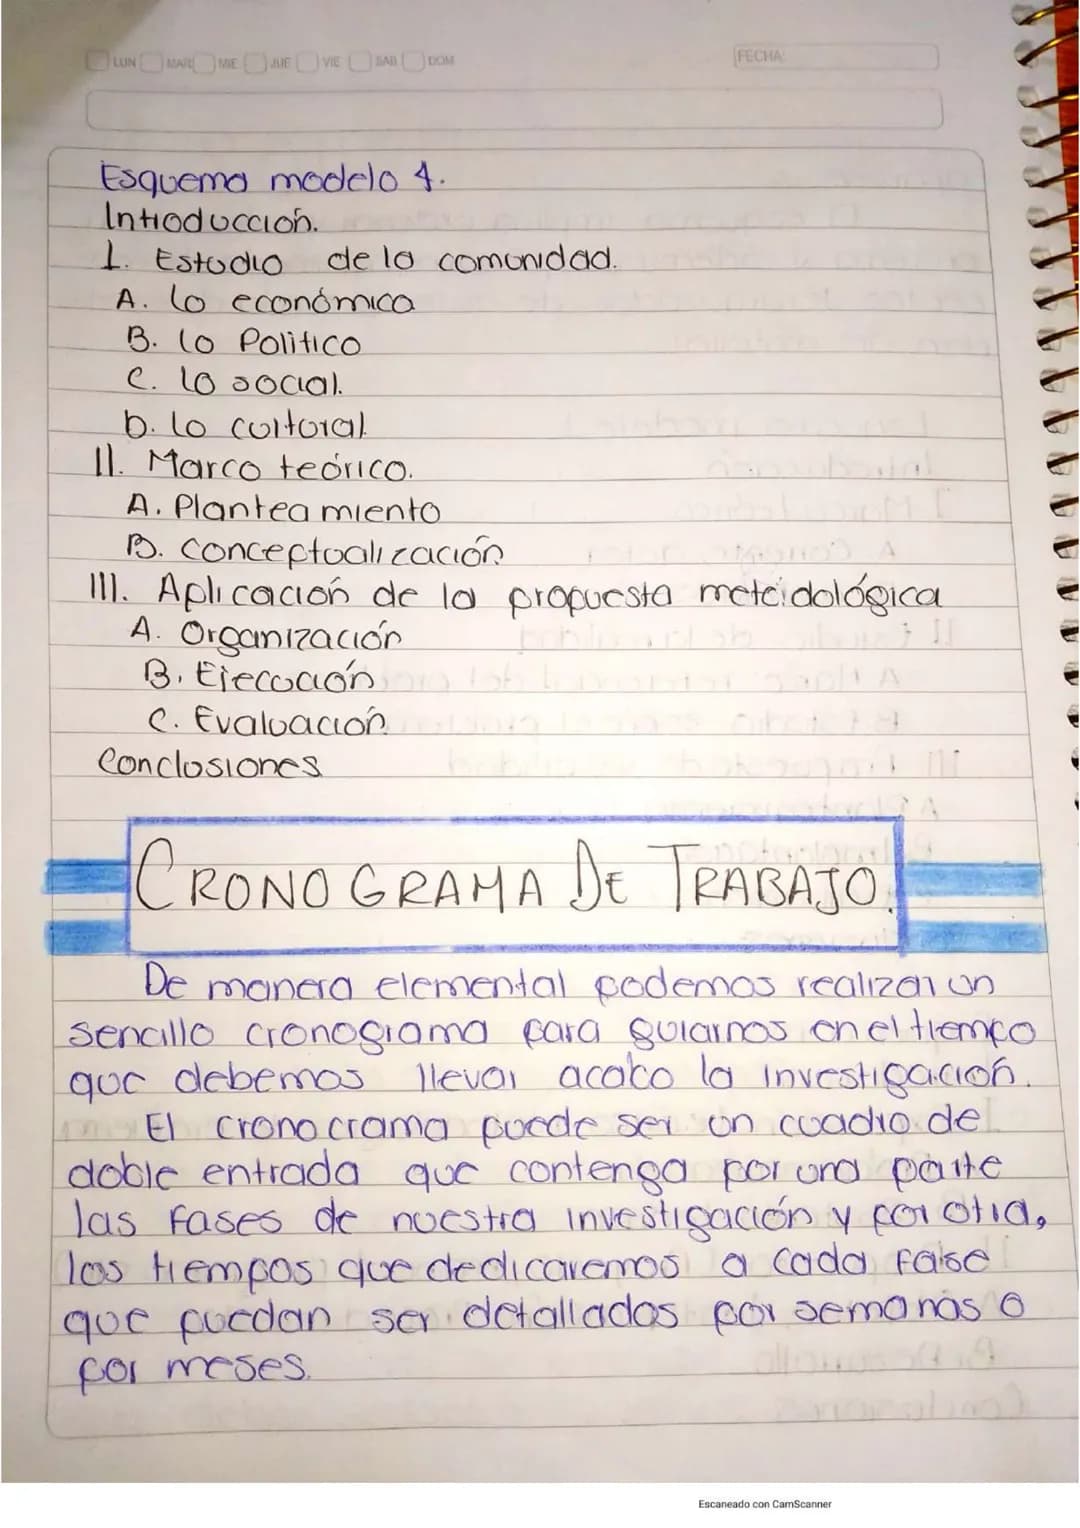 LUN MAR MIE JUE VIE SAB DOM FECHA:
Esquema modelo 4.
Introducción.
I. Estudio de la comunidad.
A. Lo económica
B. Lo Politico
C. Lo social.
D. Lo cultural.
II. Marco teórico.
A. Planteamiento
B. Conceptualización
III. Aplicación de la propuesta metoidológica
A. Organización
B. Ejecución
C. Evaluación
Conclusiones
CRONOGRAMA DE TRABAJO.
De manera elemental podemos realizar un
sencillo cronograma para guiarnos en el tiempo
que debemos llevar acabo la investigación.
El cronocrama puede ser un cuadro de
doble entrada que contenga por una parte
las fases de nuestra investigación y por otra,
los tiempos que dedicaremos a cada fase
que puedan ser detallados por semanas o
por meses.
Escaneado con CamScanner